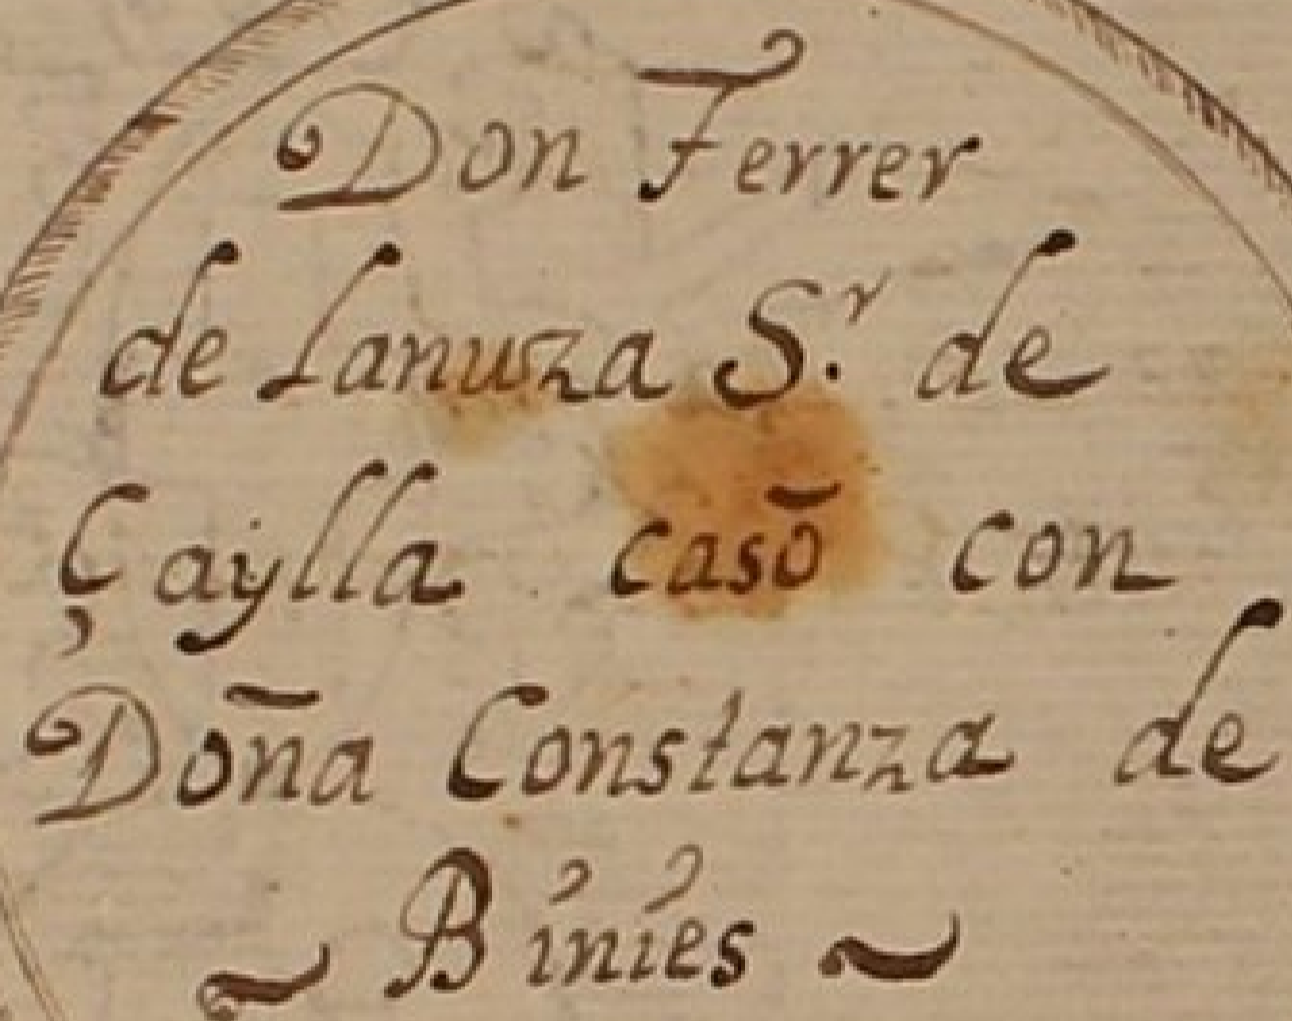 Don Ferrer
de Lanuza S.r de
Çaÿlla casō con
Doña Constanza de
Binies